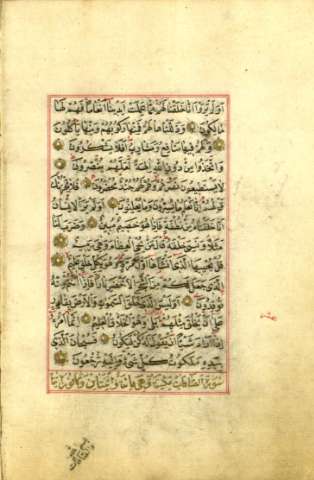 أولم يروا أنا خلقنا لهم مما عملت أيدينا أنعاما فهم لها
مالكون وذللناها لهم فمنها ركوبهم ومنها يأكلون
ولهم فيها منافع ومشارب أفلا يشكرون
واتخذوا من دون الله آلهة لعلهم ينصرون
لا يستطيعون نصرهم وهم لهم جند محضرون فلا يحزنك
قولهم إنا نعلم ما يسرون وما يعلنون أولم ير الإنسان
أنا خلقناه من نطفة فإذا هو خصيم مبين وضرب لنا
مثلا ونسي خلقه قال من يحيي العظام وهي رميم
قل يحييها الذي أنشأها أول مرة وهو بكل خلق عليم
الذي جعل لكم من الشجر الأخضر نارا فإذا أنتم منه
توقدون أوليس الذي خلق السموات والأرض بقادر
على أن يخلق مثلهم بلى وهو الخلاق العليم إنما أمره
إذا أراد شيئا أن يقول له كن فيكون فسبحان الذي
بيده ملكوت كل شيء وإليه ترجعون
سورة الصافات مكية وهي مائة واثنتان وثمانون آية